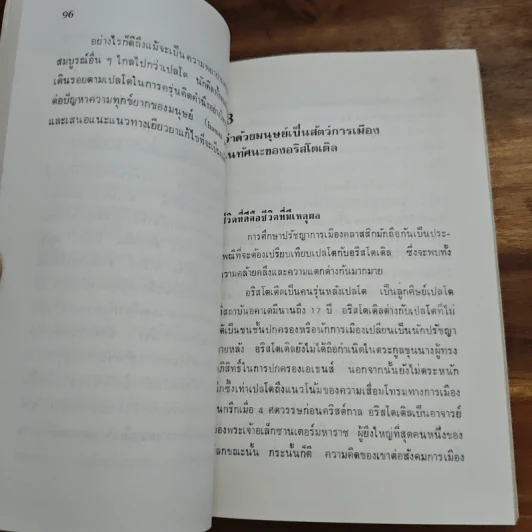 96
อย่างไรก็ดีถึงแม้จะเป็นความพยายาม
สมบูรณ์อื่น ๆ ไกลไปกว่าเปลโต นักคิด
เดินรอยตามเปลโตในการครุ่นคิดคำนึงอย่าง
ต่อปัญหาความทุกข์ยากของมนุษย์
และเสนอแนะแนวทางเยียวยาแก้ไขที่จะ
3
ว่าด้วยมนุษย์เป็นสัตว์การเมือง
ในทัศนะของอริสโตเติล
ชีวิตที่ดีคือชีวิตที่มีเหตุผล
การศึกษาปรัชญาการเมืองคลาสสิกมักถือกันเป็นประ-
เพณีที่จะต้องเปรียบเทียบเปลโตกับอริสโตเติล ซึ่งจะพบทั้ง
ความคล้ายคลึงและความแตกต่างกันมากมาย
อริสโตเติลเป็นคนรุ่นหลังเปลโต เป็นลูกศิษย์เปลโต
ที่สถาบันอคาเดมีนานถึง 17 ปี อริสโตเติลต่างกับเปลโตที่ไม่
ได้เป็นชนชั้นปกครองหรือนักการเมืองเปลี่ยนเป็นนักปรัชญา
ภายหลัง อริสโตเติลยังไม่ได้ถือกำเนิดในตระกูลขุนนางผู้ทรง
อภิสิทธิ์ในการปกครองเอเธนส์ นอกจากนั้นยังไม่ตระหนัก
ลึกซึ้งเท่าเปลโตถึงแนวโน้มของความเสื่อมโทรมทางการเมือง
ในกรีกเมื่อ 4 ศตวรรษก่อนคริสต์กาล อริสโตเติลเป็นอาจารย์
ของพระเจ้าอเล็กซานเดอร์มหาราช ผู้ยิ่งใหญ่ที่สุดคนหนึ่งของ
โลกขณะนั้น กระนั้นก็ดี ความคิดของเขาต่อสังคมการเมือง